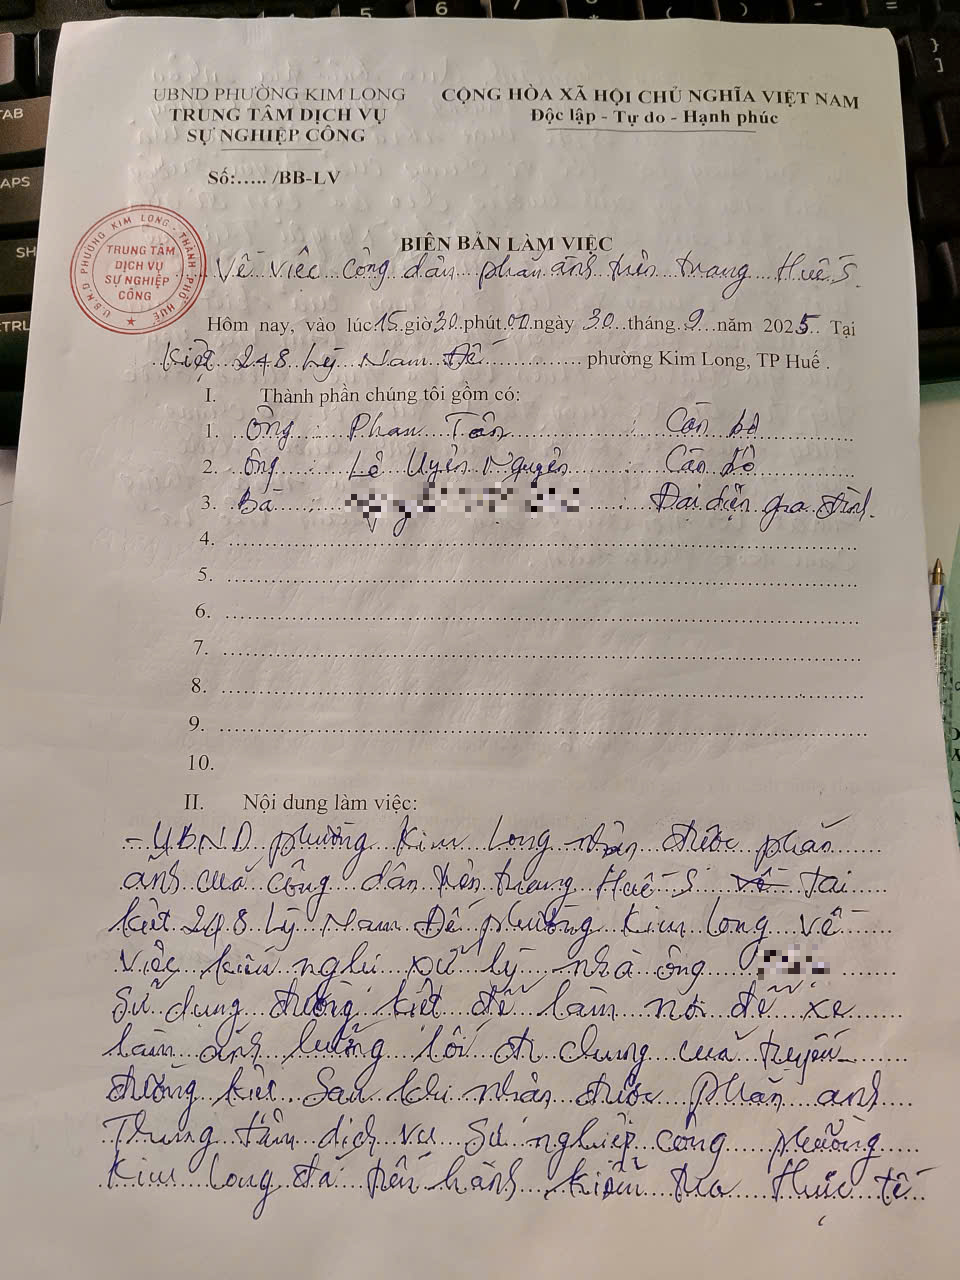 UBND PHƯỜNG KIM LONG
TRUNG TÂM DỊCH VỤ
SỰ NGHIỆP CÔNG
CỘNG HÒA XÃ HỘI CHỦ NGHĨA VIỆT NAM
Độc lập - Tự do - Hạnh phúc
Số:..... /BB-LV
U.B.N.D PHƯỜNG KIM LONG - THÀNH PHỐ HUẾ
TRUNG TÂM
DỊCH VỤ
SỰ NGHIỆP
CÔNG
BIÊN BẢN LÀM VIỆC
Về việc công dân phản ánh trên trang Huế S.
Hôm nay, vào lúc 15 giờ 30 phút 00 ngày 30 tháng 9 năm 2025. Tại
Kiệt 248 Lý Nam Đế phường Kim Long, TP Huế.
I. Thành phần chúng tôi gồm có:
1. Ông : Phan Tân : Cán bộ
2. Ông : Lê Uyên Nguyên : Cán bộ
3. Bà : : Đại diện gia đình.
4.
5.
6.
7.
8.
9.
10.
II. Nội dung làm việc:
- UBND phường Kim Long nhận được phản
ánh của công dân trên trang Huế S về tại
kiệt 248 Lý Nam Đế phường Kim Long về
việc kiến nghị xử lý nhà ông
sử dụng đường kiệt để làm nơi để xe
làm ảnh hưởng lối đi chung của tuyến
đường kiệt. Sau khi nhận được phản ánh
Trung tâm dịch vụ sự nghiệp công phường
Kim Long đã tiến hành kiểm tra thực tế